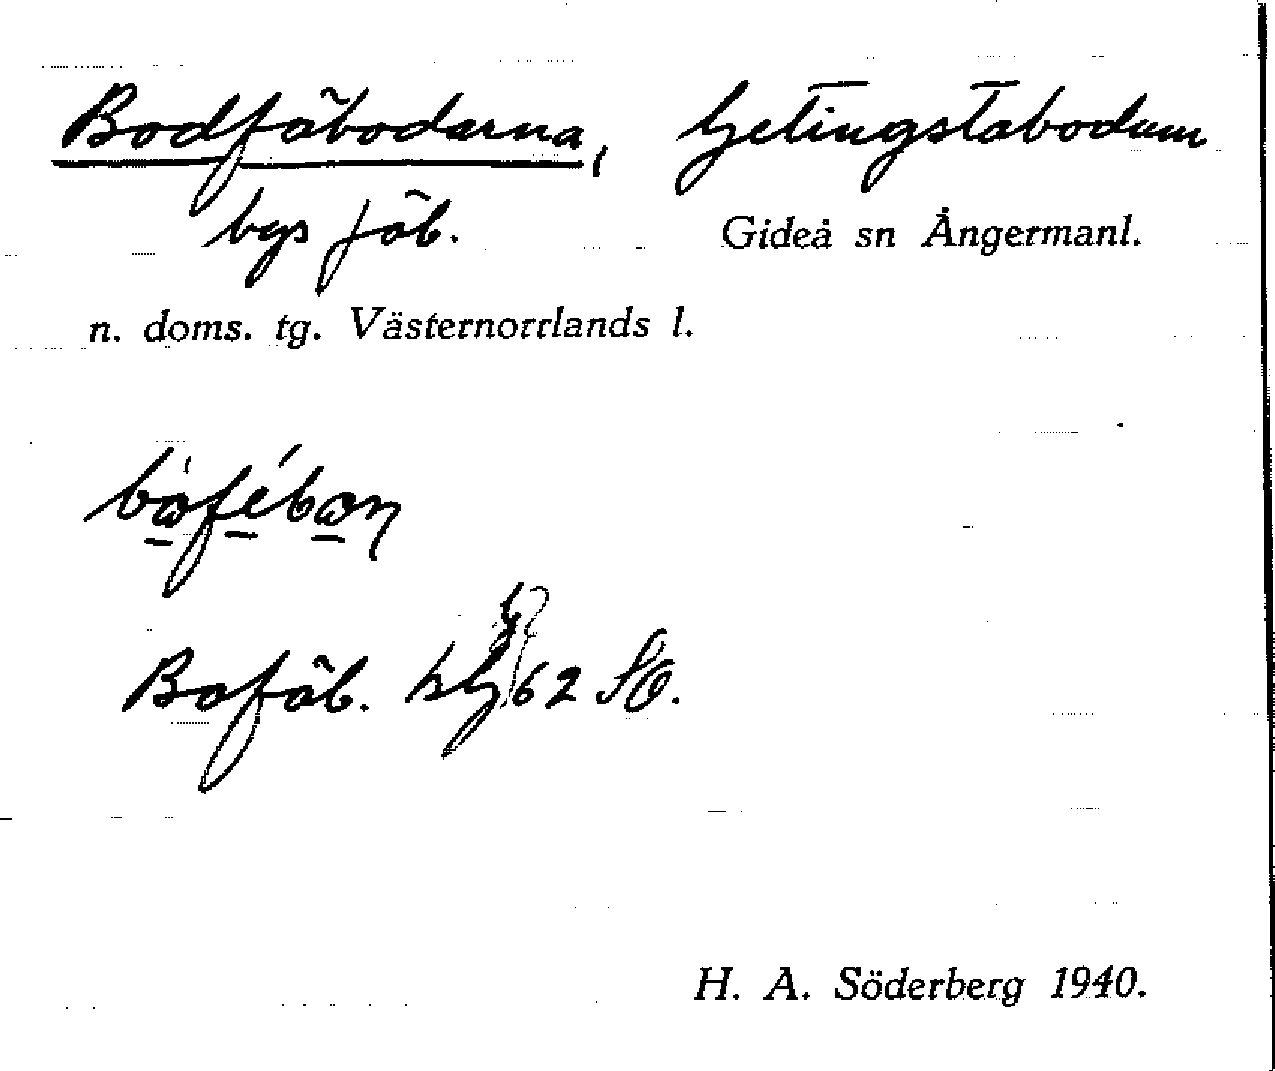 Bodfäbodarna, Getingstabodum
bys fäb. Gideå sn Ångermanl.
n. doms. tg. Västernorrlands l.
Bofäb. 62
H. A. Söderberg 1940.